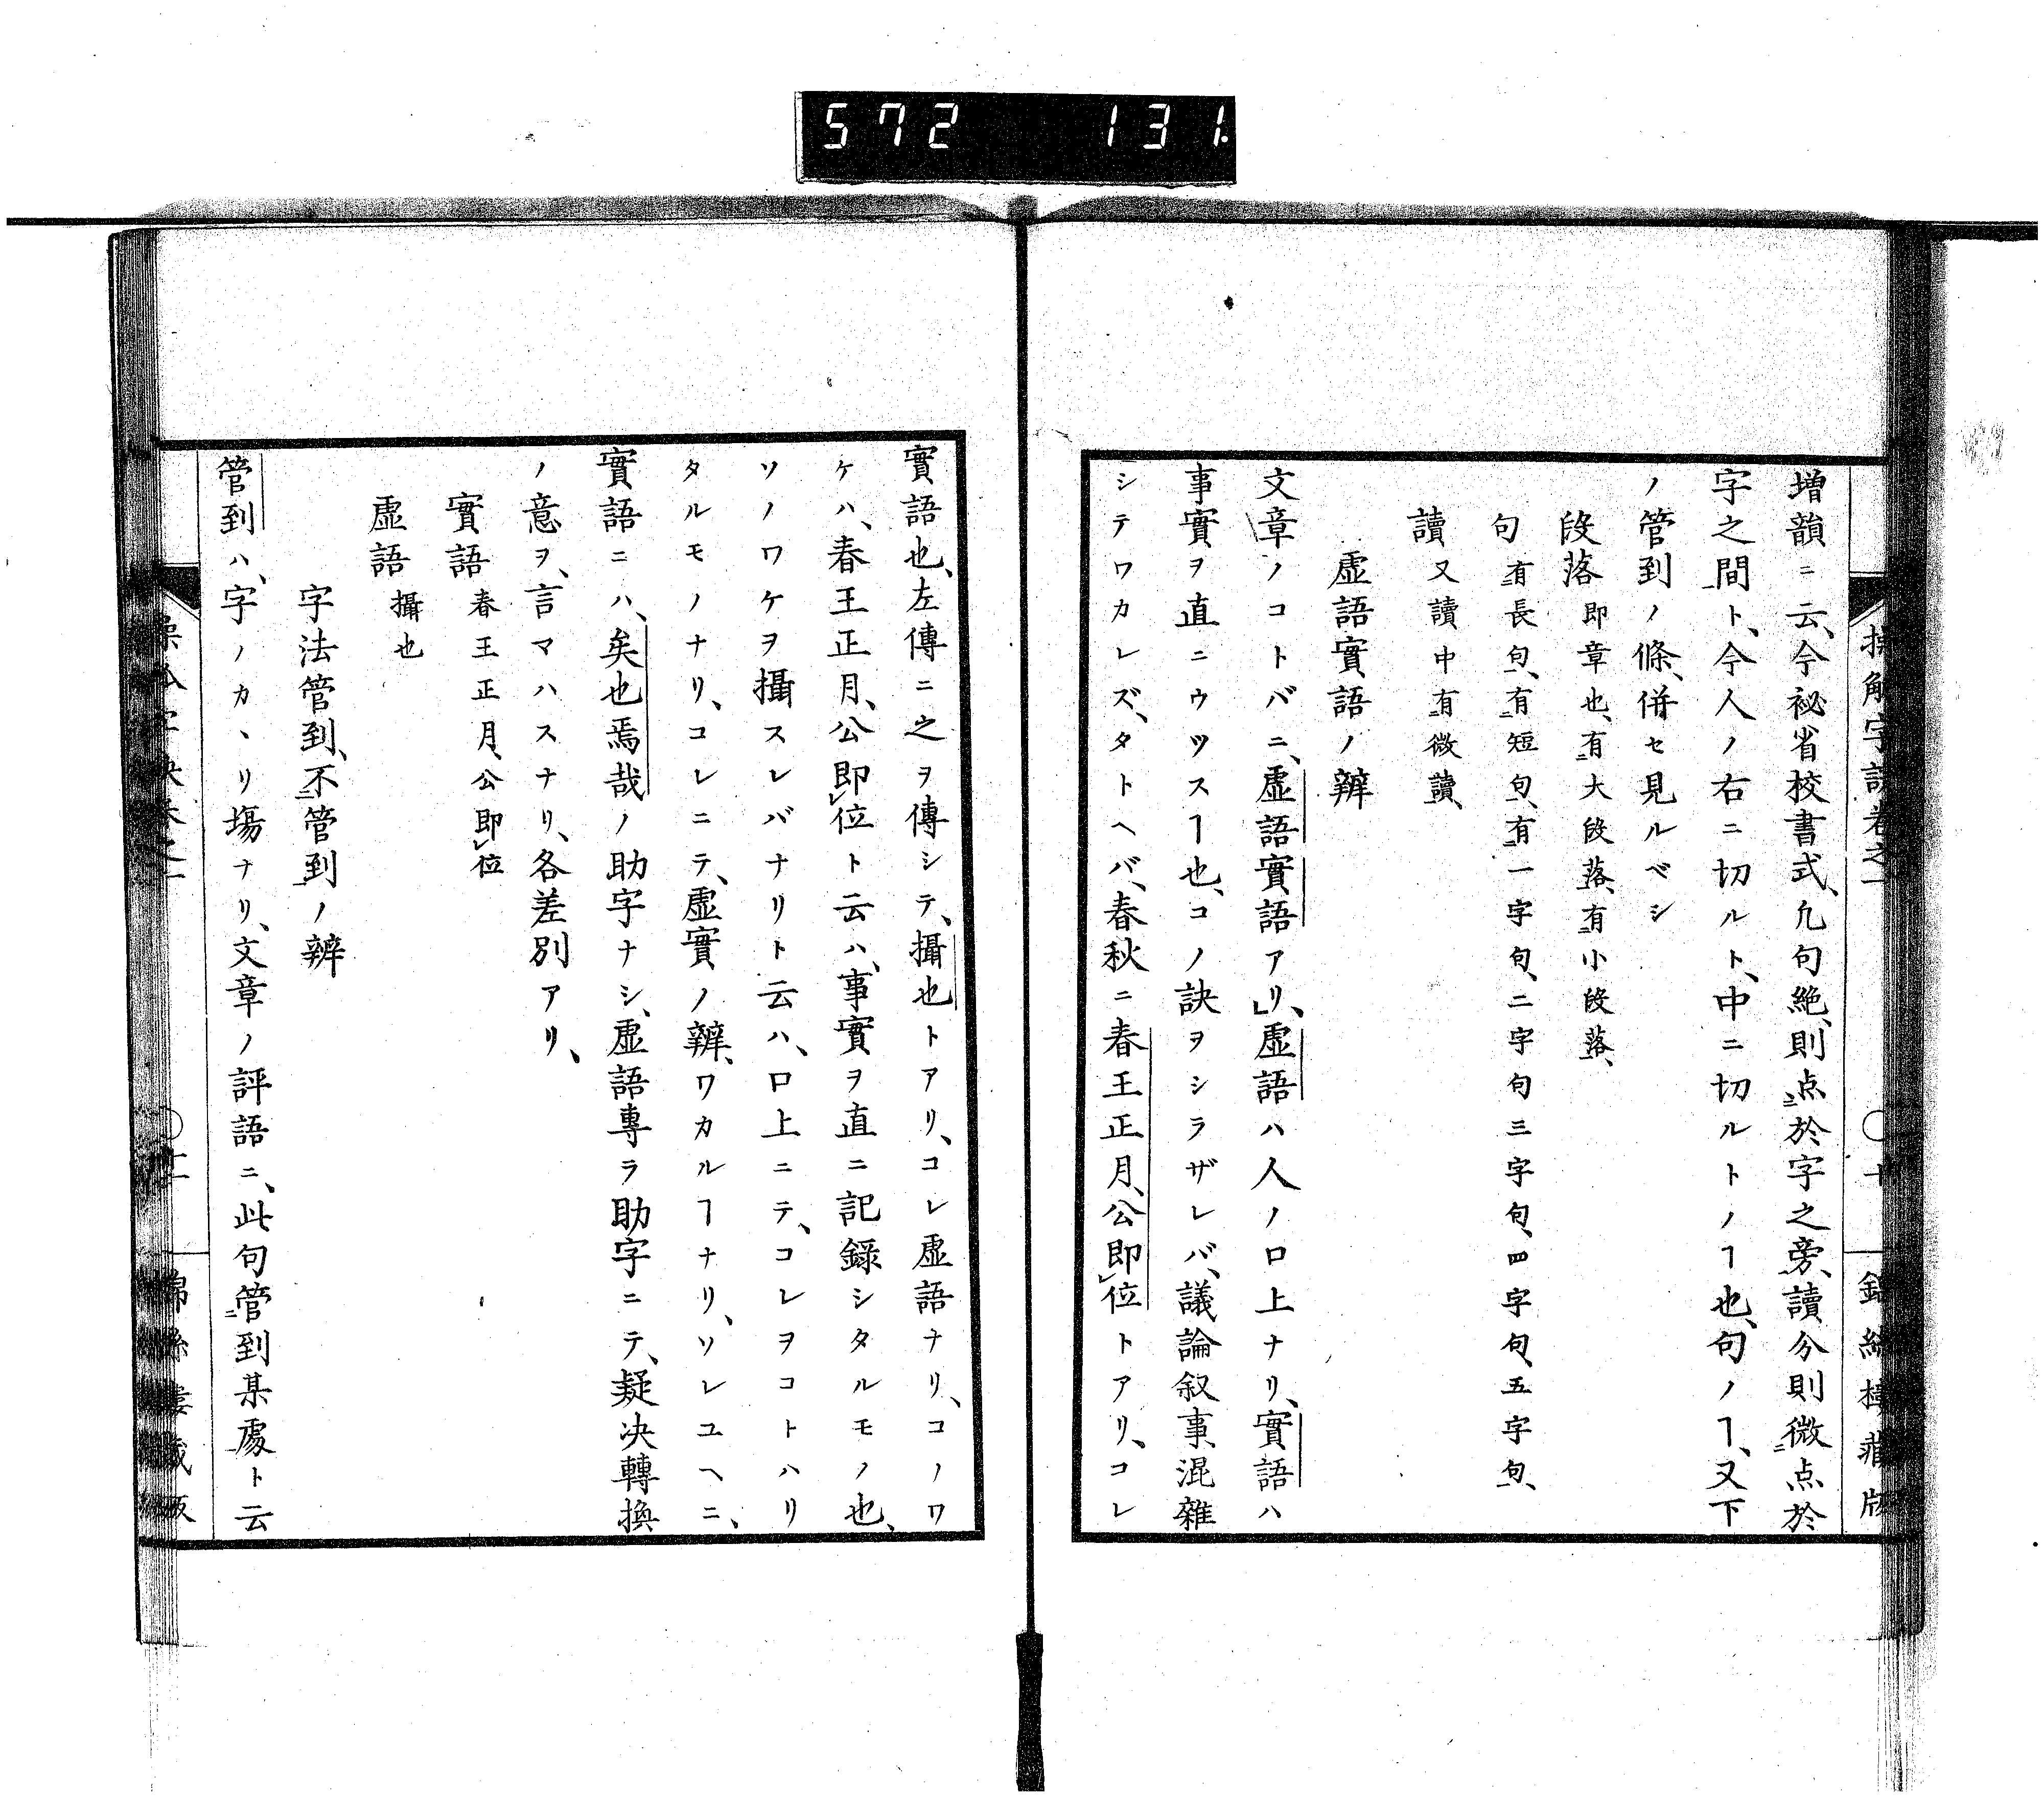 572 131
増韻ニ云、今祕省校書式、凢句絶、則点於字之旁、讀分則微点於
字之間ト、今人ノ右ニ切ルト、中ニ切ルトノヿ也、句ノヿ、又下
ノ管到ノ條、併セ見ルベシ
段落 即章也、有大段落、有小段落、
句 有長句、有短句、有一字句、二字句三字句、四字句、五字句、
讀 又讀中有微讀、
虚語實語ノ辨
文章ノコトバニ、虚語實語アリ、虚語ハ人ノ口上ナリ、實語ハ
事實ヲ直ニウツスヿ也、コノ訣ヲシラザレバ、議論叙事、混雜
シテワカレズ、タトヘバ、春秋ニ春王正月、公即位トアリ、コレ
實語也、左傳ニ之ヲ傳シテ、攝也トアリ、コレ虚語ナリ、コノワ
ケハ、春王正月、公即位ト云ハ、事實ヲ直ニ記録シタルモノ也、
ソノワケヲ攝スレバナリト云ハ、口上ニテ、コレヲコトハリ
タルモノナリ、コレニテ、虚實ノ辨、ワカルヿナリ、ソレユヘニ、
實語ニハ、矣也焉哉ノ助字ナシ、虚語專ラ助字ニテ、疑決轉換
ノ意ヲ、言マハスナリ、各差別アリ、
實語 春王正月、公即位
虚語 攝也
字法管到、不管到ノ辨
管到ハ、字ノカヽリ塲ナリ、文章ノ評語ニ、此句管到某處ト云